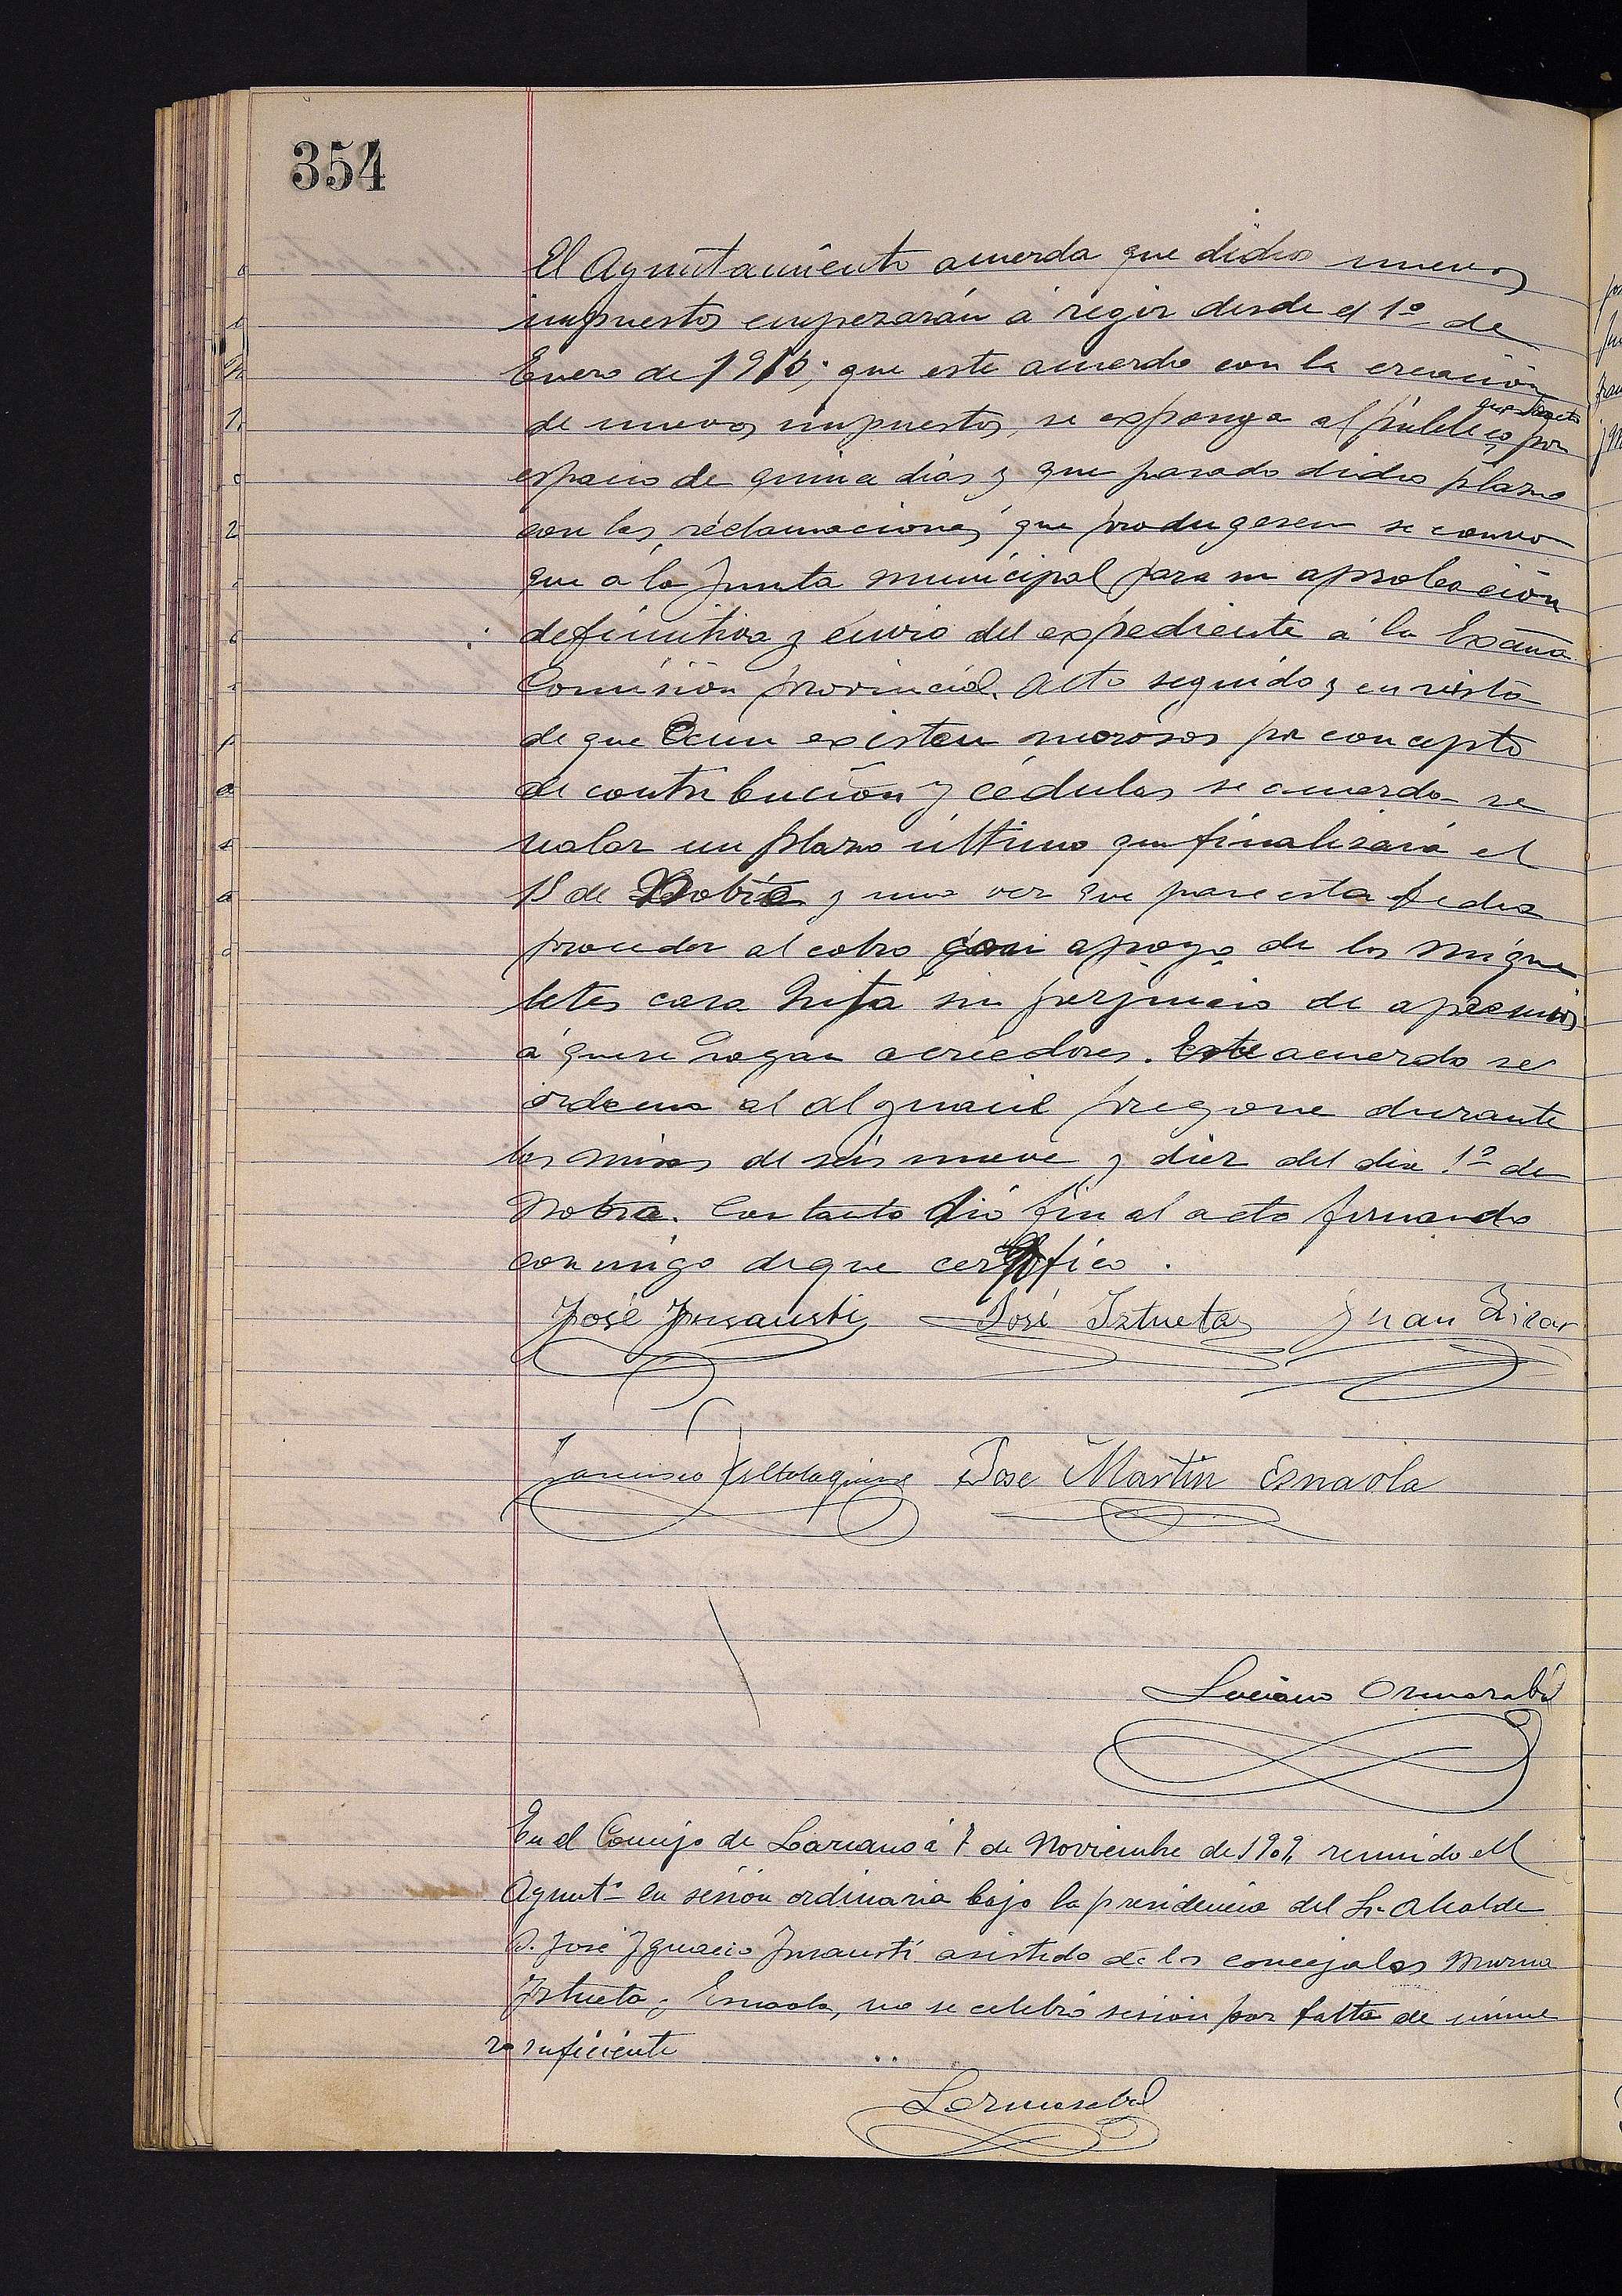 354
El Ayuntamiento acuerda que dichos nuevos
impuestos empezarán á regir desde el 1º de
Enero de 1910; que este acuerdo con la creación
de nuevos impuestos, se exponga al público, por
espacio de quince dias y que pasado dicho plazo
con las reclamaciones que produgesen se convo
que a la Junta municipal para su aprobación
definitiva y envio del expediente á la Excma
Comisión provincial. Acto seguido y en vista
de que aun existen morosos por concepto
de contribución y cédulas se acuerda se
ñalar un plazo último que finalizará el
15 de Nobre y una vez que pase esta fecha
proceder al cobro con apoyo de los mique
letes casa hita sin perjuicio de apremios
á que se hagan acreedores. Este acuerdo se
ordena al alguacil pregone durante
las misas de seis nueve y diez del dia 1º de
Nobre. Con tanto dió fin al acto firmando
conmigo de que certifico.
José Insausti José Iztueta Juan
Francisco José Martin Esnaola
Luciano Ormazabal
En el Concejo de Lazcano á 7 de Noviembre de 1909, reunido el
Ayuntº en sesión ordinaria bajo la presidencia del Sr. Alcalde
D. José Ygnacio Insausti asistido de los concejales Murua
Iztueta y Esnaola, no se celebró sesión por falta de núme
ro suficiente
L. Ormazabal